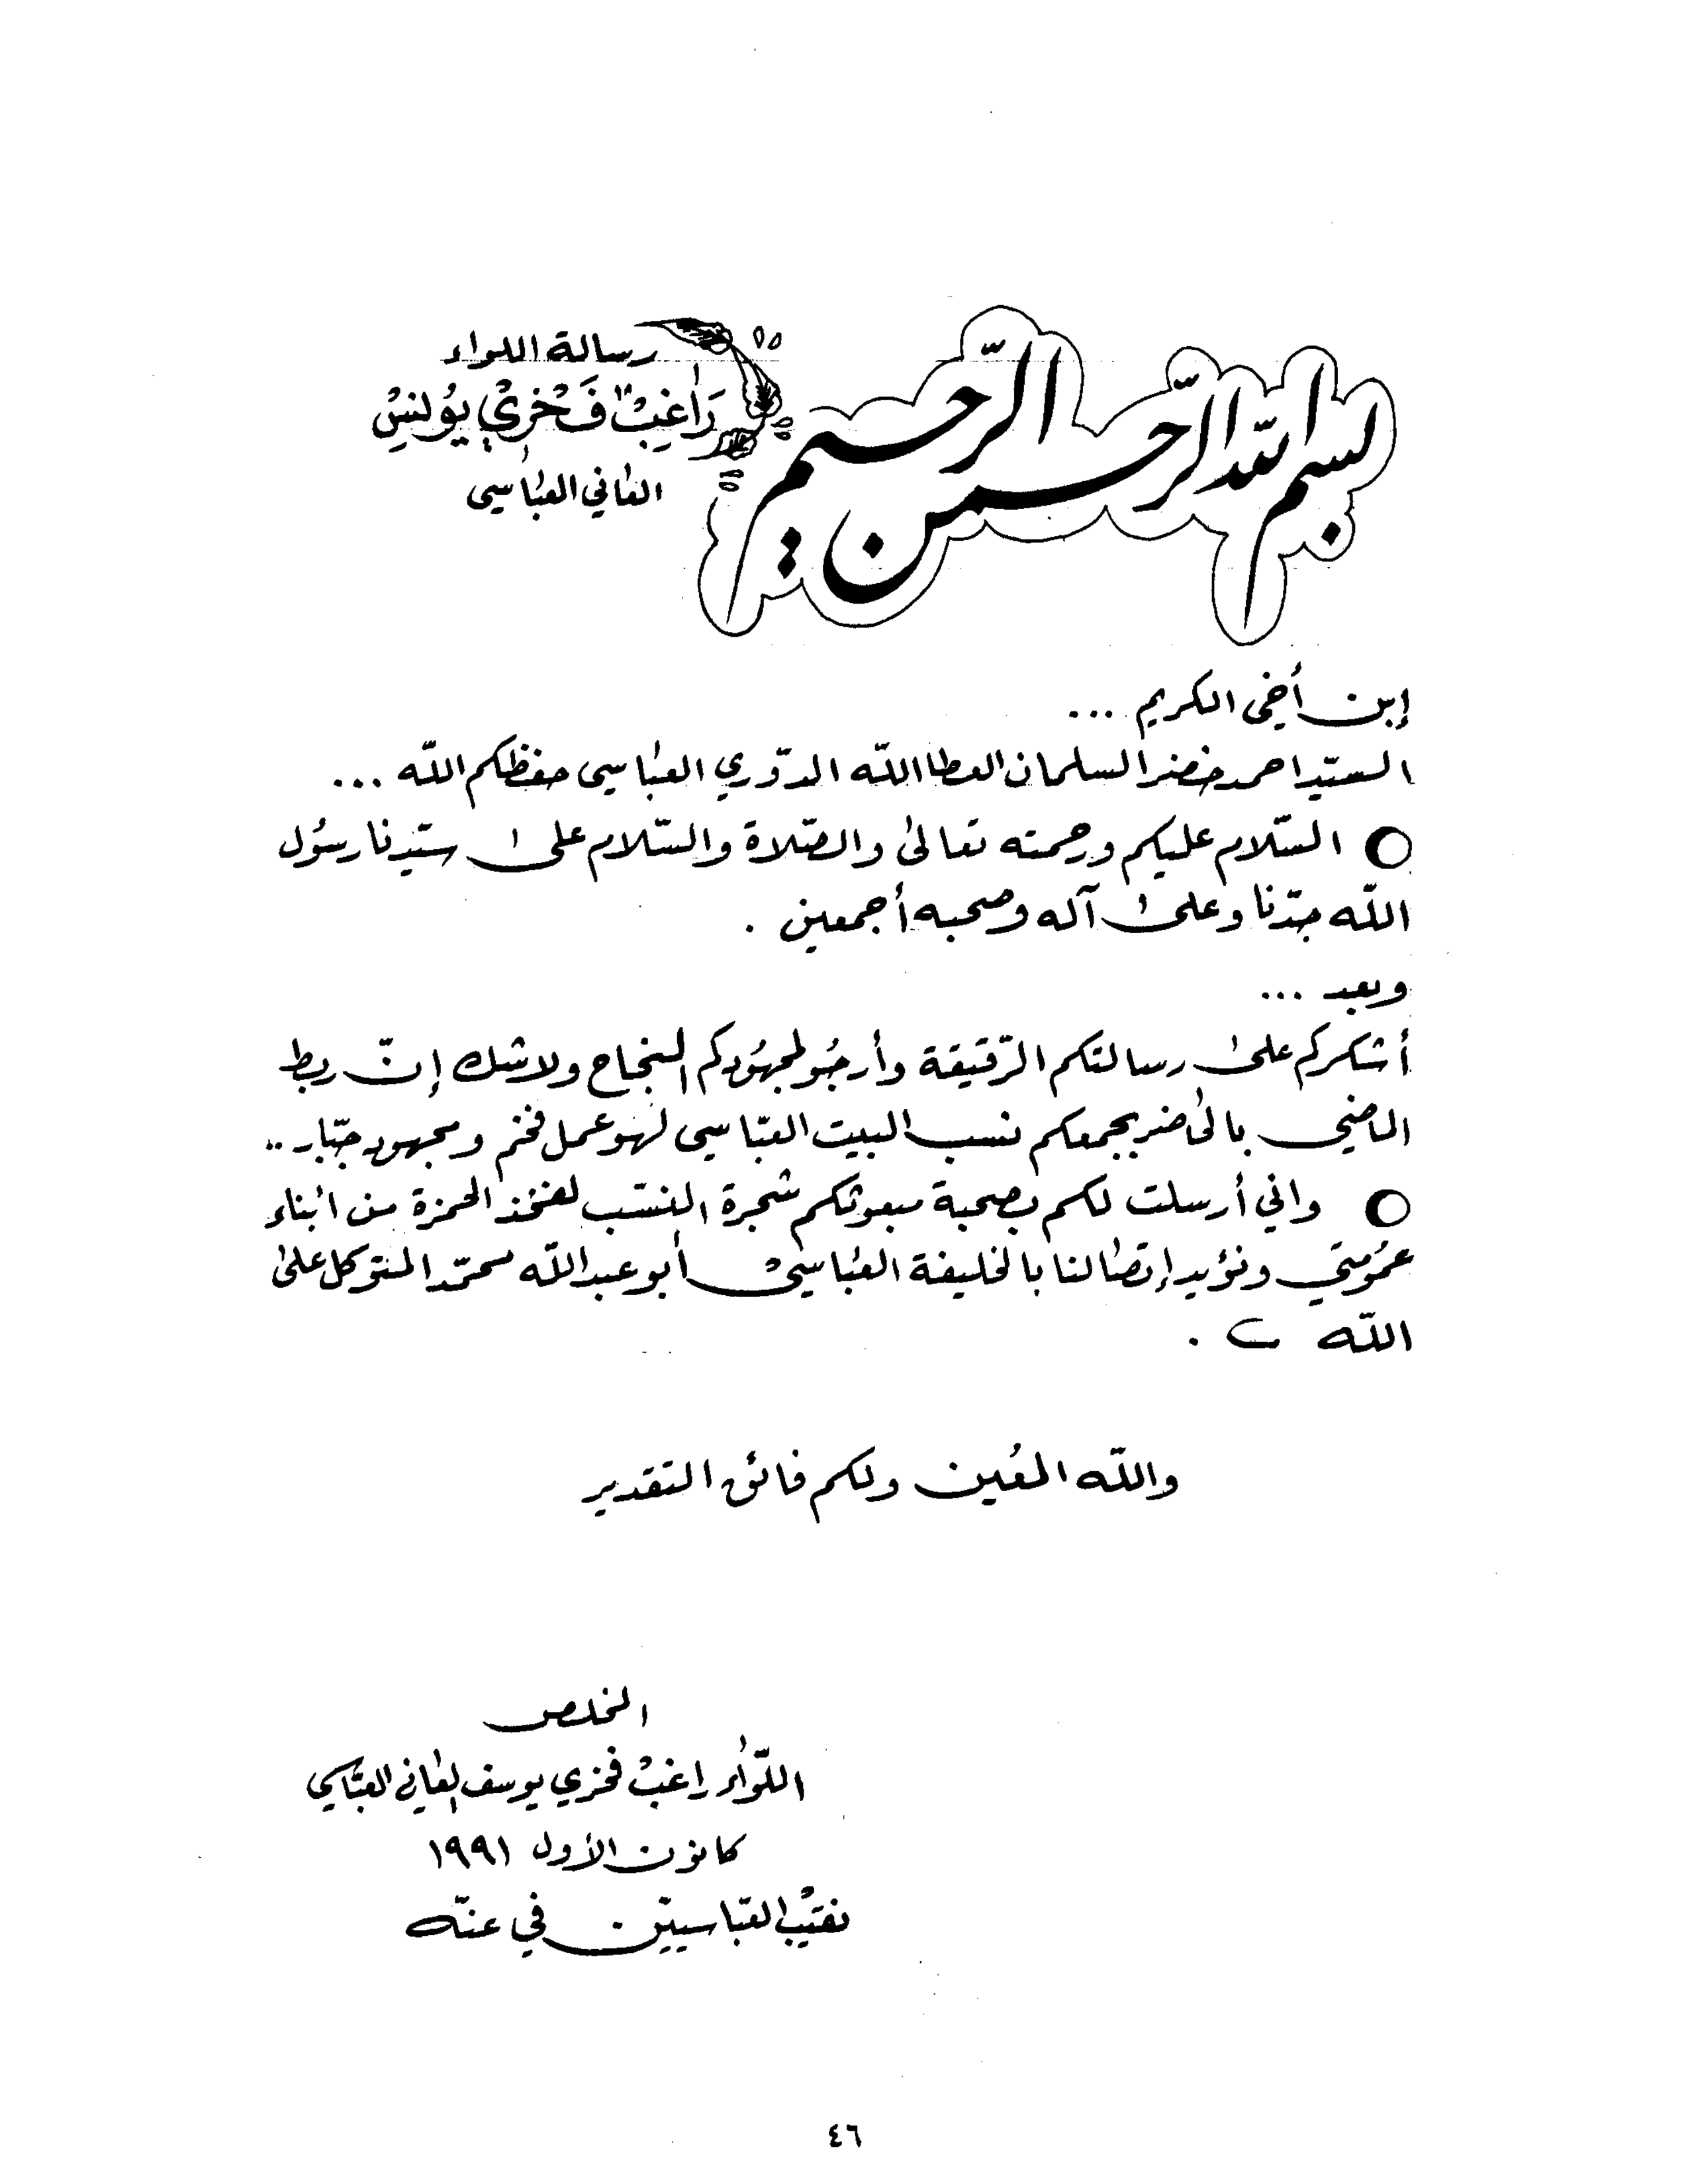 بسم الله الرحمن الرحيم
رسالة اللواء
راغب فخري يونس
العاني العباسي
إبن أخي الكريم ...
السيّد احمد خضر السلمان العطا الله الدّوري العباسي حفظكم الله ...
السّلام عليكم ورحمته تعالى والصّلاة والسّلام على سيّدنا رسول
الله جدّنا وعلى آله وصحبه أجمعين .
وبعد ...
أشكركم على رسالتكم الرّقيقة وأرجو لمجهودكم النجاح ولاشك إنّ ربط
الماضي بالحاضر بجمعكم نسب البيت العبّاسي لهو عمل فخم ومجهود جبّار ..
واني أرسلت لكم بصحبة مبعوثكم شجرة النسب لفخذ الحمزة من ابناء
عمومتي ونؤيد إتصالنا بالخليفة العباسي أبو عبد الله محمّد المتوكل على
الله .
والله المعين ولكم فائق التقدير
المخلص
اللّواء راغب فخري يوسف العاني العبّاسي
كانون الأول ١٩٩١
نقيب العبّاسييّن في عنّه
٤٦